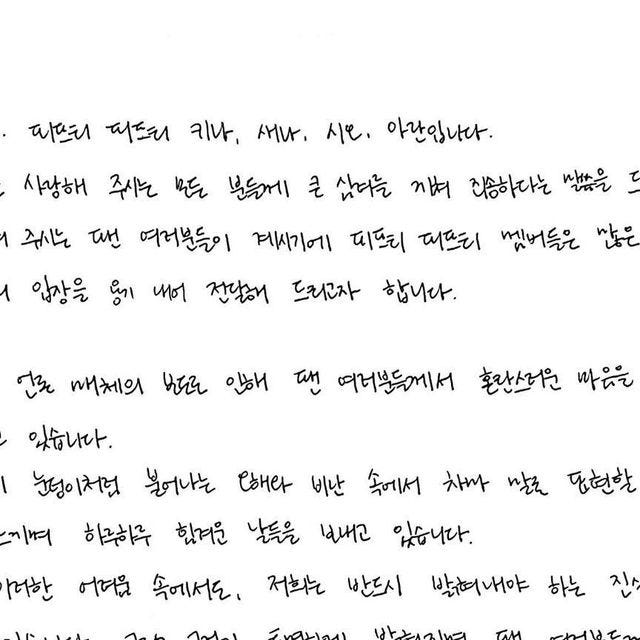 . 피프티 피프티 키나, 새나, 시오, 아란입니다.
사랑해 주시는 모든 분들께 큰 심려를 끼쳐 죄송하다는 말씀을 드
주시는 팬 여러분들이 계시기에 피프티 피프티 멤버들은 많은
입장을 용기 내어 전달해 드리고자 합니다.
언론 매체의 보도로 인해 팬 여러분들께서 혼란스러운 마음을
고 있습니다.
눈덩이처럼 불어나는 오해와 비난 속에서 차마 말로 표현할
느끼며 하루하루 힘겨운 날들을 보내고 있습니다.
이러한 어려움 속에서도, 저희는 반드시 밝혀내야 하는 진실
밝혀지며 팬 여러분들